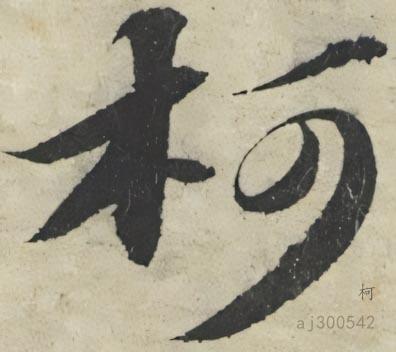 柯
柯
aj300542